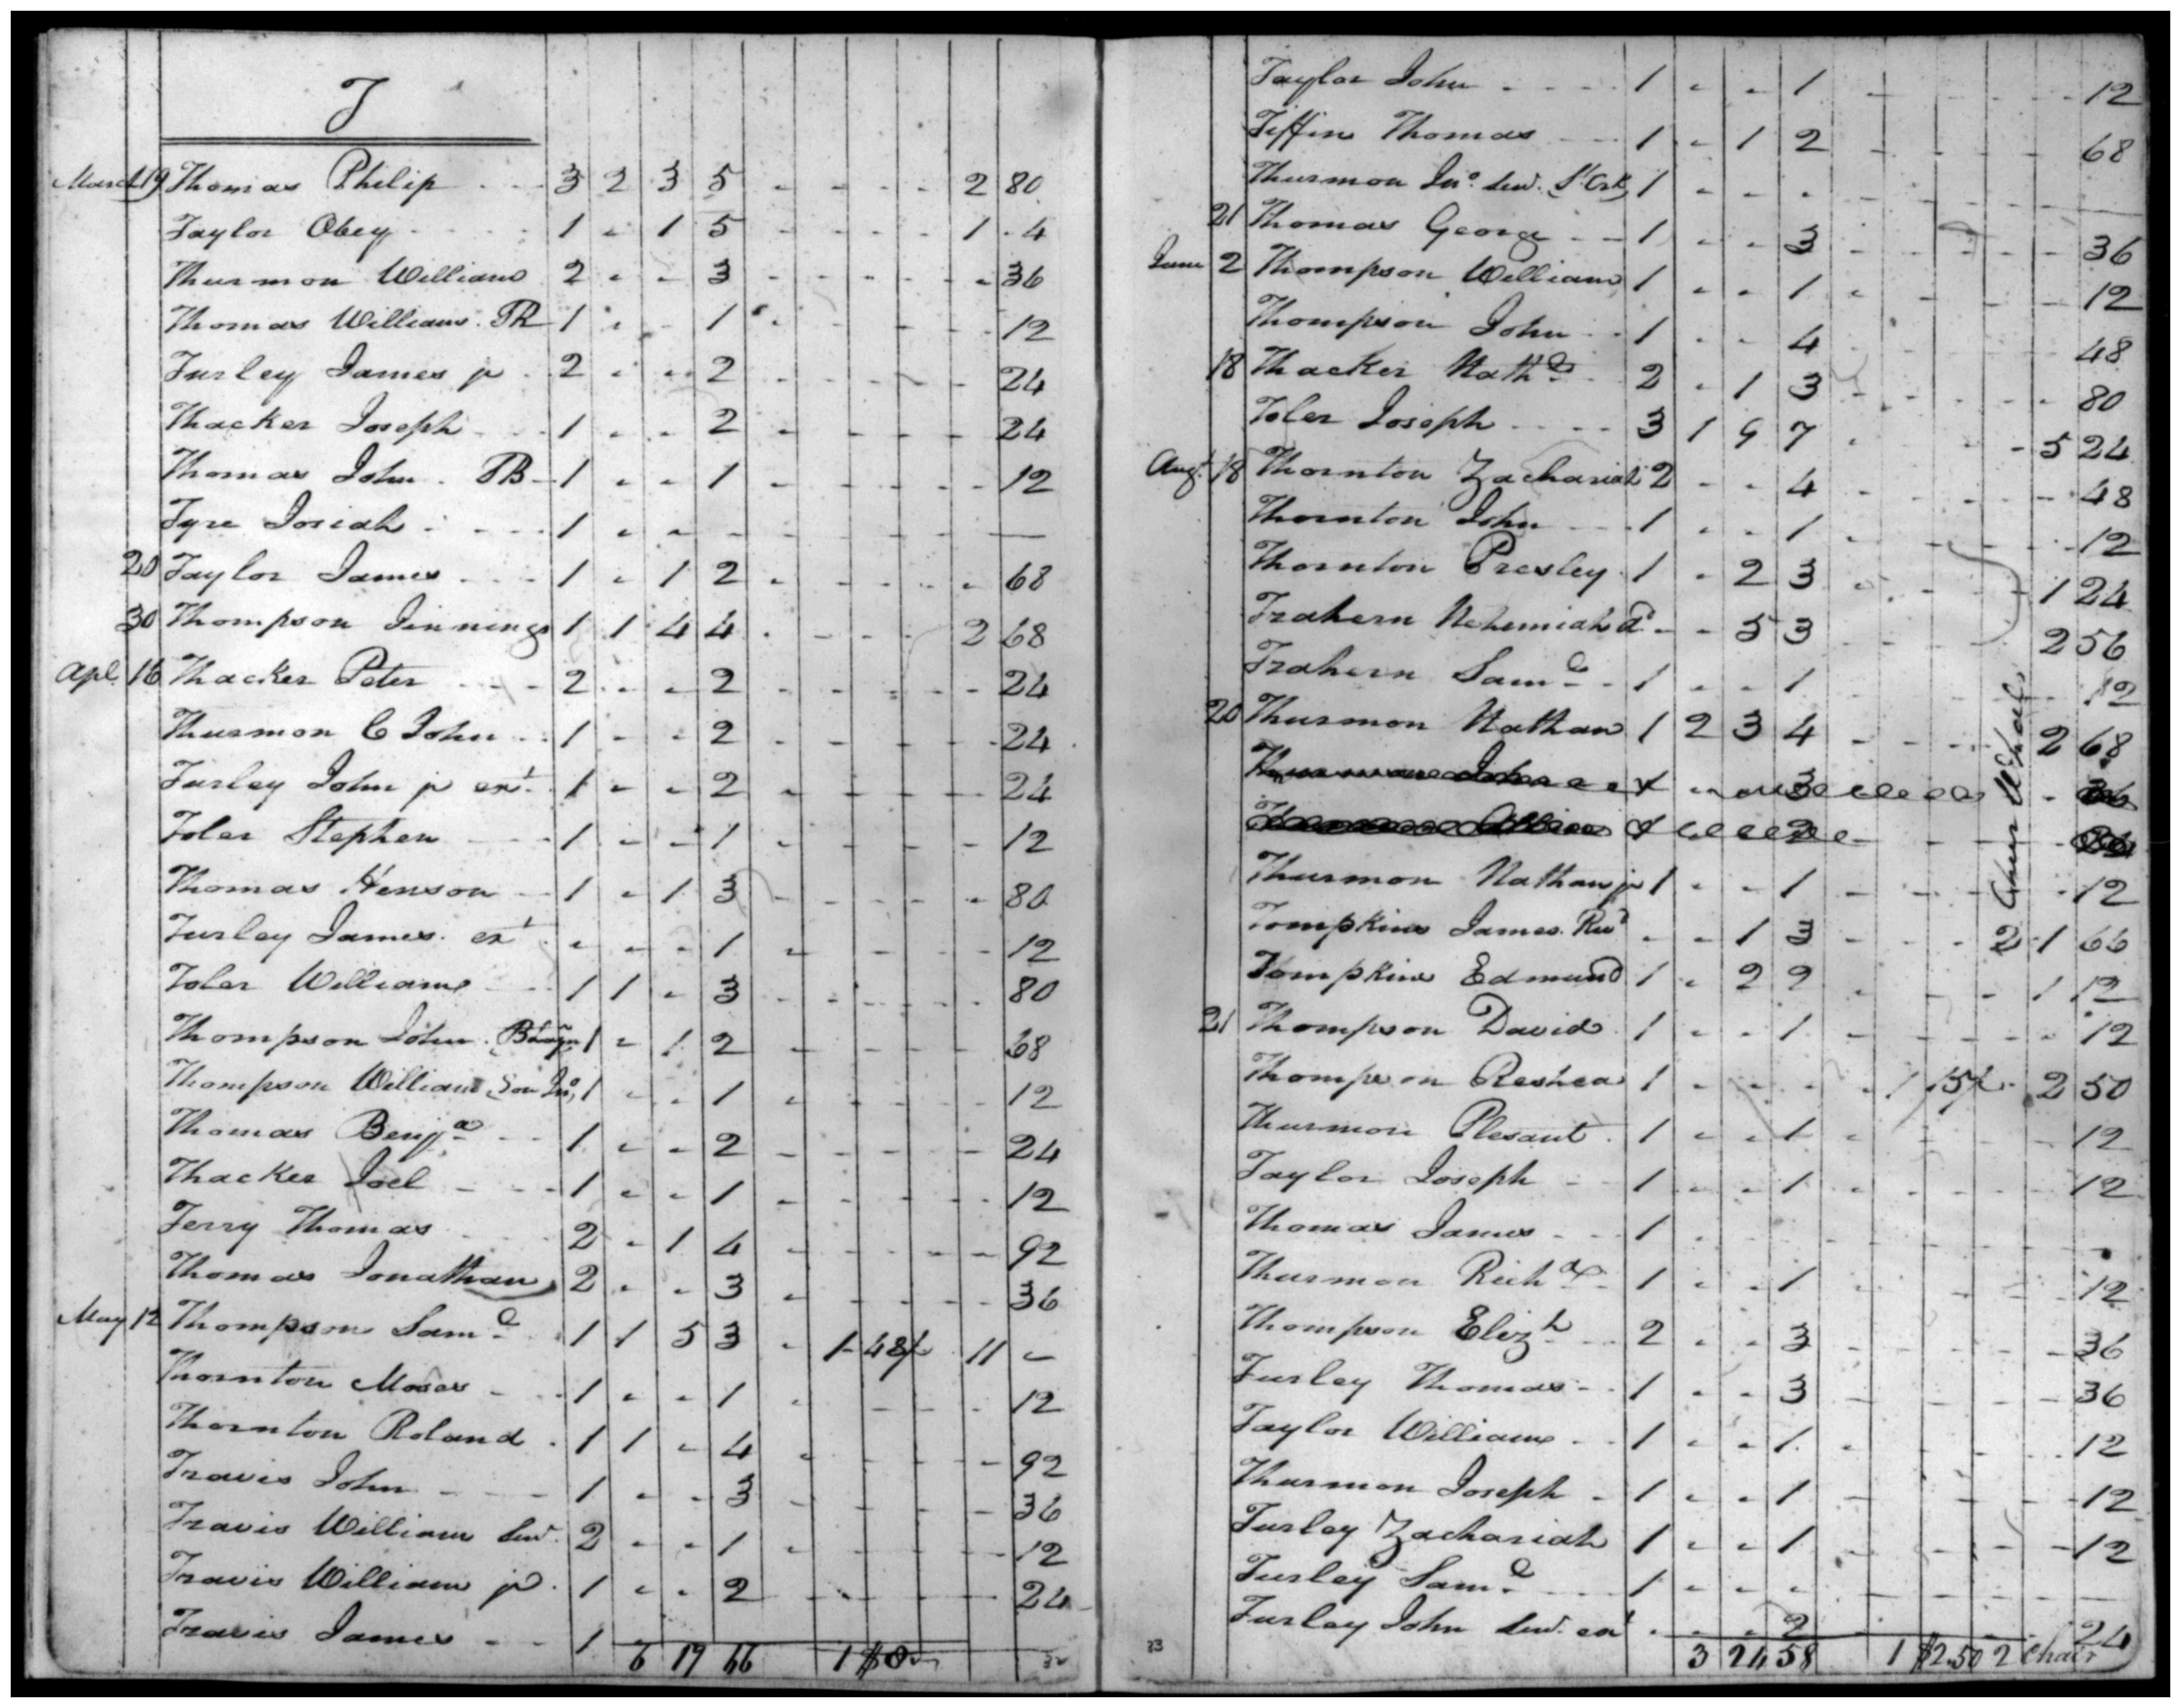 T
March 19 Thomas Philip 3 2 3 5 - - - - 2 80
Taylor Obey 1 - 1 5 - - - - 1 - 4
Thurmon William 2 - - 3 - - - - - 36
Thomas William TR 1 - - 1 - - - - 12
Turley James jr 2 - - 2 - - - - - 24
Thacker Joseph 1 - - 2 - - - - - 24
Thomas John TB 1 - - 1 - - - - - 12
Tyre Josiah 1 - - - - - - - -
20 Taylor James 1 - 1 2 - - - - - 68
30 Thompson Jinnings 1 1 4 4 - - - - 2 68
Apl 16 Thacker Peter 2 - - 2 - - - - - 24
Thurmon C John 1 - - 2 - - - - - 24
Turley John jr ext 1 - - 2 - - - - - 24
Toler Stephen 1 - - 1 - - - - - 12
Thomas Henson 1 - 1 3 - - - - - 80
Turley James ext - - - 1 - - - - - 12
Toler William 1 1 - 3 - - - - - 80
Thompson John 1 - 1 2 - - - - - 68
Thompson William Son Jno 1 - - 1 - - - - - 12
Thomas Benja 1 - - 2 - - - - - 24
Thacker Joel 1 - - 1 - - - - - 12
Terry Thomas 2 - 1 4 - - - - - 92
Thomas Jonathan 2 - - 3 - - - - - 36
May 12 Thompson Saml 1 1 5 3 - 1 - 48/ - 11 -
Thornton Moses 1 - - 1 - - - - 12
Thornton Roland 1 1 - 4 - - - - - 92
Travis John 1 - - 3 - - - - - 36
Travis William Senr 2 - - 1 - - - - - 12
Travis William jr 1 - - 2 - - - - - 24
Travis James - - 1
6 19 66 1 $8
32
Taylor John 1 - - 1 - - - - - 12
Tiffin Thomas 1 - 1 2 - - - - 68
Thurmon Jno Senr 1 - - -
21 Thomas George 1 - - 3 - - - - - 36
June 2 Thompson William 1 - - 1 - - - - - 12
Thompson John 1 - - 4 - - - - 48
18 Thacker Nathl 2 - 1 3 - - - - - 80
Toler Joseph 3 1 9 7 - - - - 5 24
Augt 18 Thornton Zachariah 2 - - 4 - - - - - 48
Thornton John 1 - - 1 - - - - - 12
Thornton Presley 1 - 2 3 - - - - 1 24
Trahern Nehemiah - - 5 3 - - - - 2 56
Trahern Saml 1 - - 1 - - - - 12
20 Thurmon Nathan 1 2 3 4 - - - - 2 68
3
2
Thurmon Nathan jr 1 - - 1 - - - - 12
Tompkins James - - 1 3 - - - 2 1 66
2 Chair Wheels
Tompkins Edmund 1 - 2 2 - - - 1 12
21 Thompson David 1 - - 1 - - - - - 12
Thompson Reshea 1 - - - - 1 15/ - 2 50
Thurmon Plesant 1 - - 1 - - - - 12
Taylor Joseph 1 - - 1 - - - - 12
Thomas James 1 - - - - - - -
Thurmon Richd 1 - - 1 - - - - 12
Thompson Elizh 2 - - 3 - - - - - 36
Turley Thomas 1 - - 3 - - - - - 36
Taylor William 1 - - 1 - - - - 12
Thurmon Joseph 1 - - 1 - - - - - 12
Turley Zachariah 1 - - 1 - - - - - 12
Turley Saml 1 - - - - - - -
Turley John Senr ext - - - 2 - - - - 24
3 24 58 1 $2.50 2 chair
33